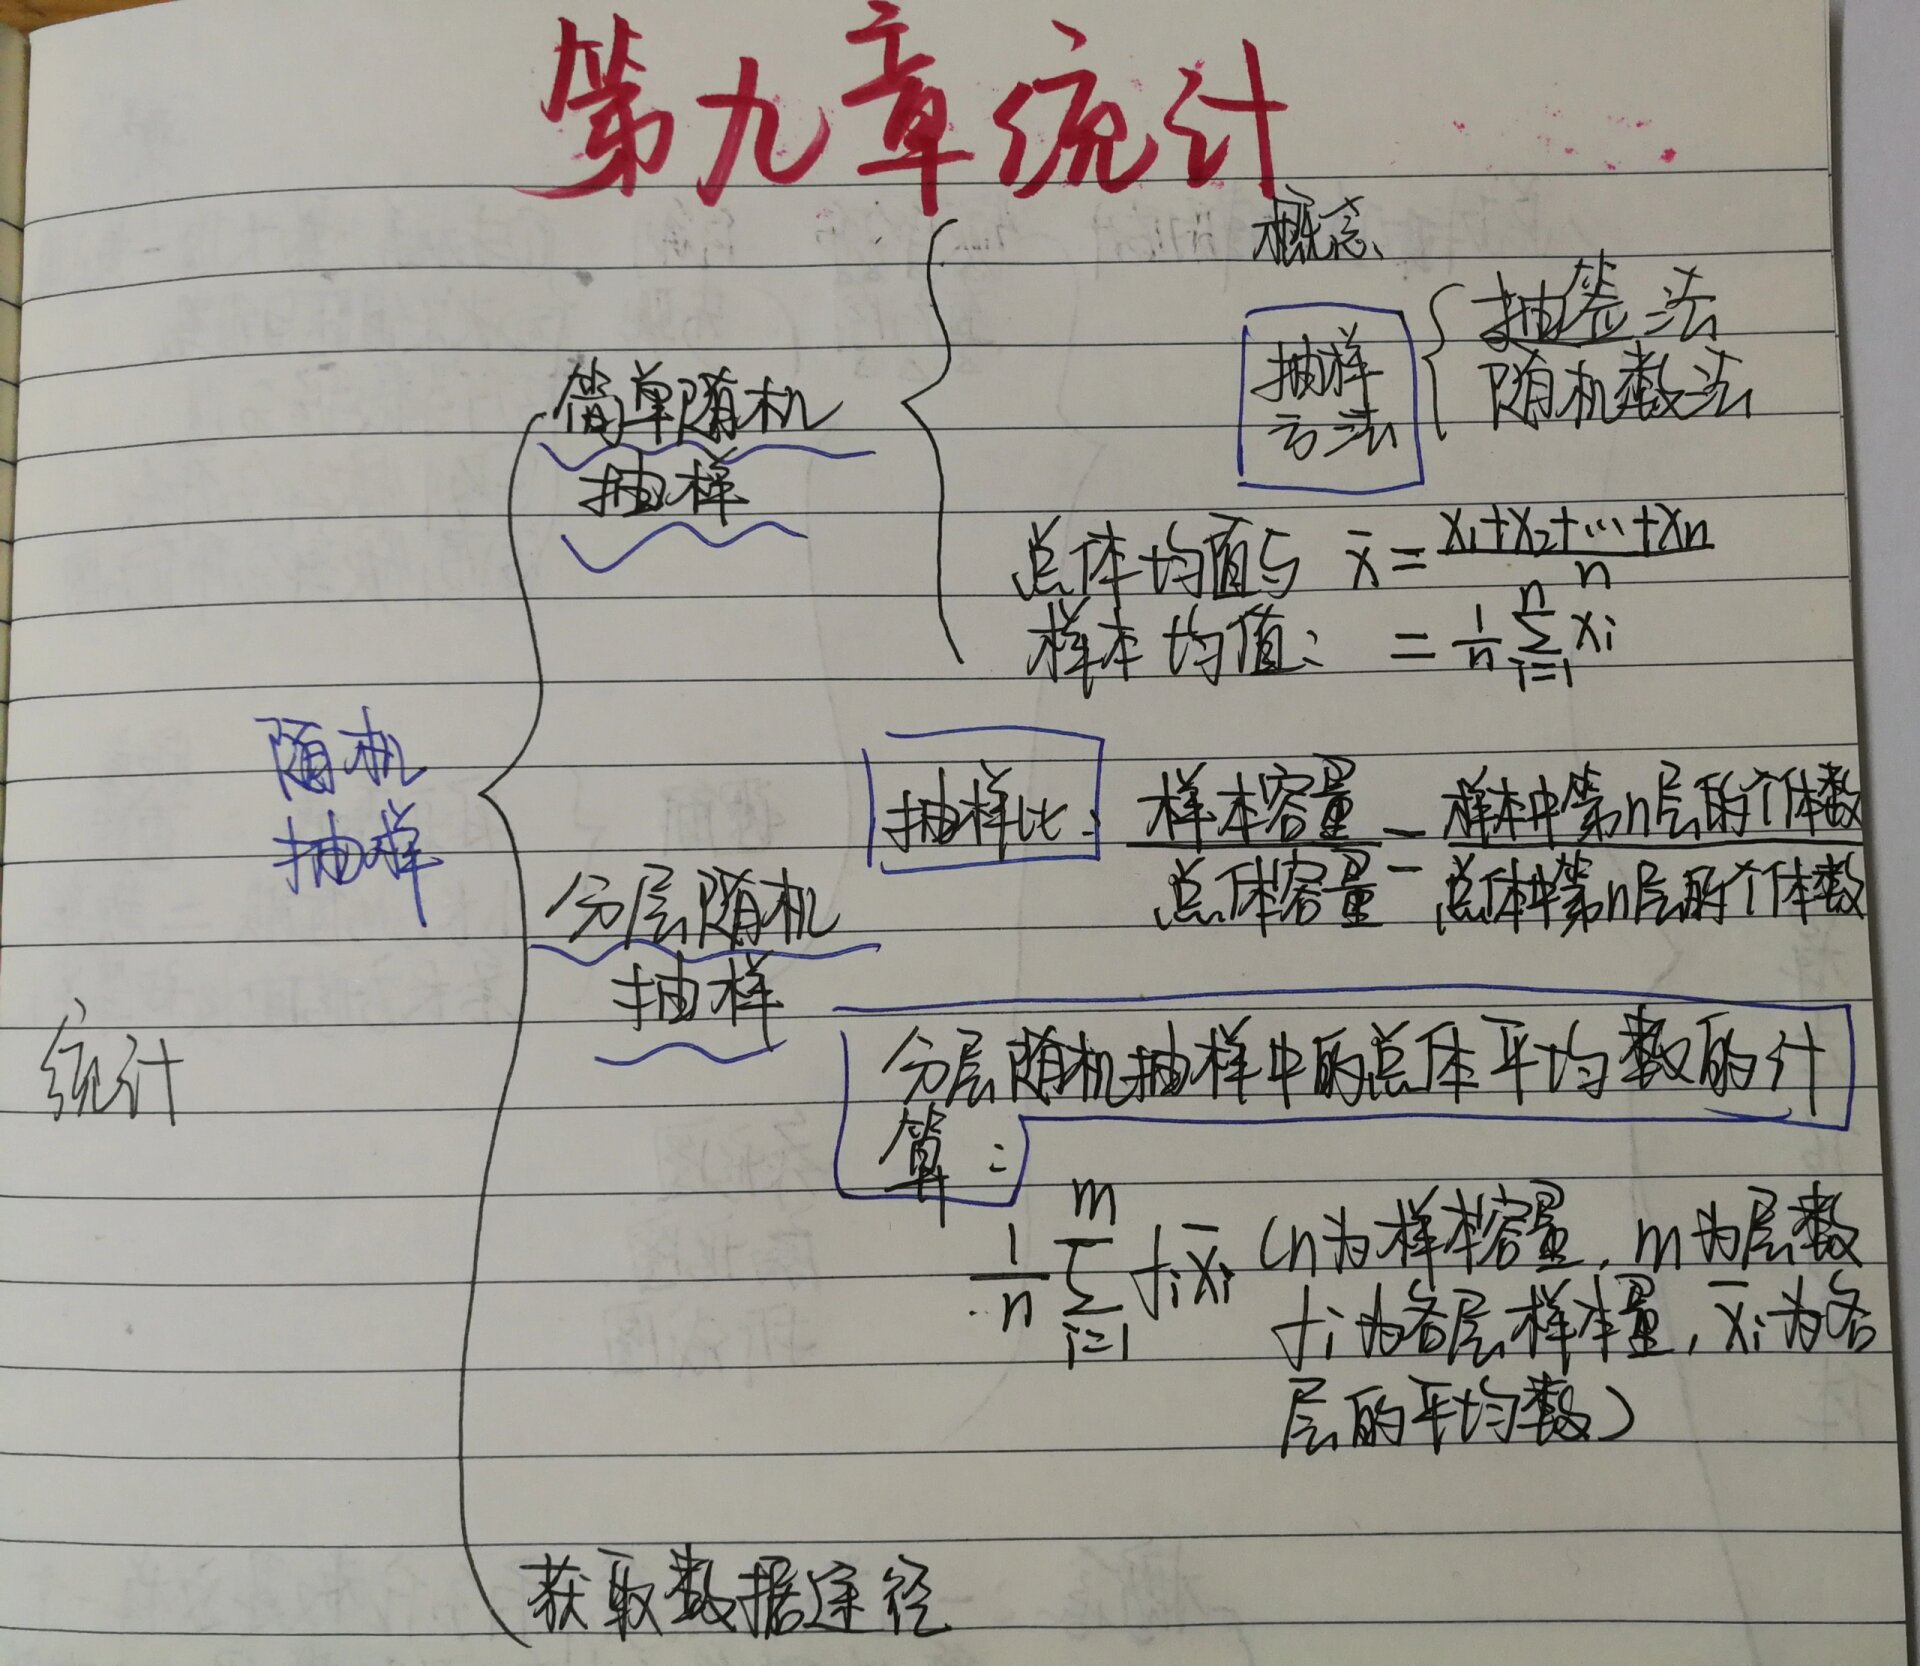 第九章统计
统计
随机
抽样
简单随机
抽样
概念
抽样
方法
抽签法
随机数法
总体均值与 x̄ = (x₁+x₂+…+xn)/n
样本均值: = 1/n Σ(i=1 to n) xi
分层随机
抽样
抽样比: 样本容量/总体容量 = 样本中第n层的个体数/总体中第n层的个体数
分层随机抽样中的总体平均数的计
算:
1/n Σ(i=1 to m) fi x̄i (n为样本容量, m为层数
fi为各层样本量, x̄i为各
层的平均数)
获取数据途径